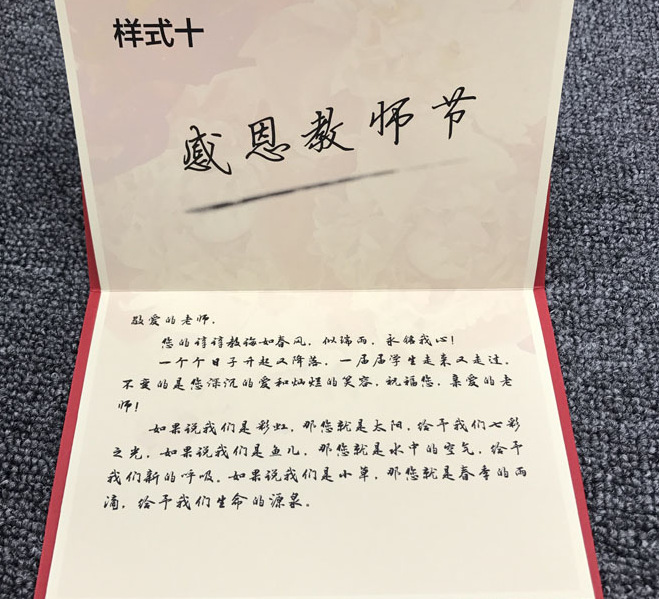 样式十
感恩教师节
敬爱的老师,
您的谆谆教诲如春风,似瑞雨,永铭我心!
一个个日子升起又降落,一届届学生走来又走过,
不变的是您深沉的爱和灿烂的笑容,祝福您,亲爱的老
师!
如果说我们是彩虹,那您就是太阳,给予我们七彩
之光,如果说我们是鱼儿,那您就是水中的空气,给予
我们新的呼吸,如果说我们是小草,那您就是春季的雨
滴,给予我们生命的源泉。